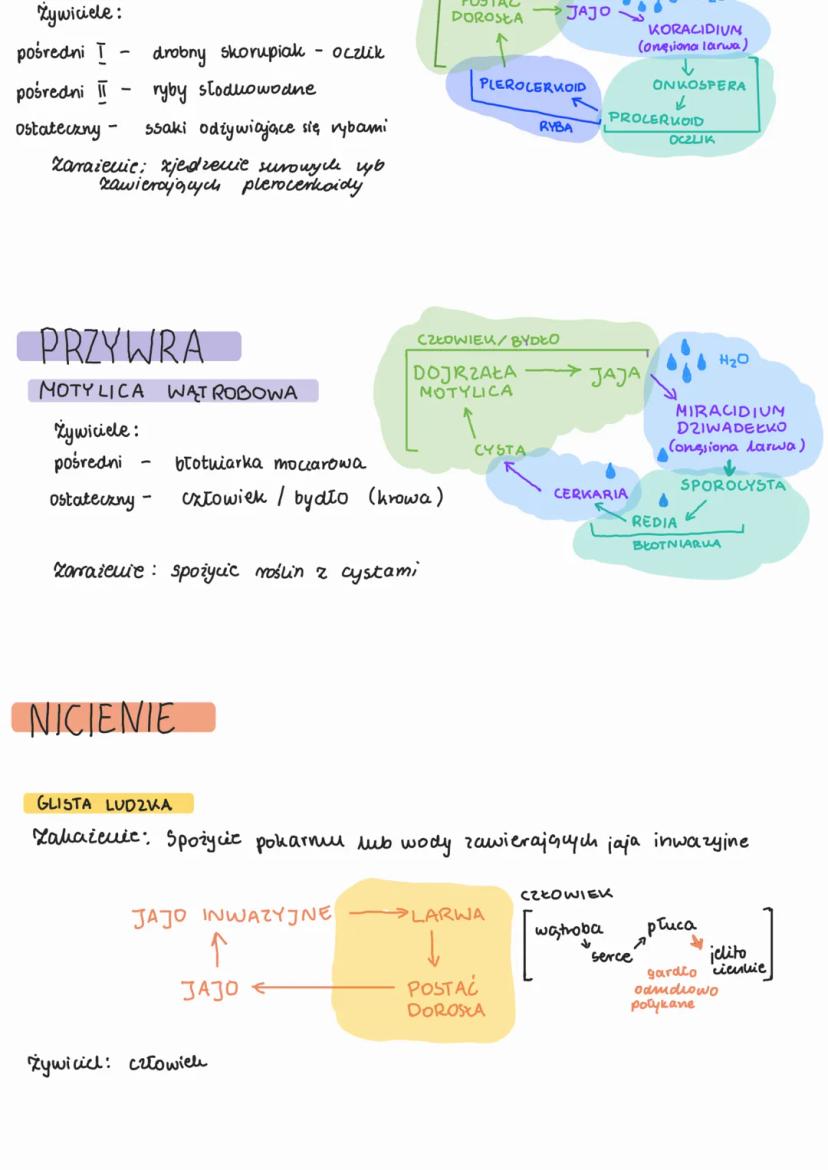 Żywiciele:
pośredni I - drobny skorupiak - oczlik
pośredni II - ryby słodkowodne
ostateczny - ssaki odżywiające się rybami
Zarażenie: zjedzenie surowych ryb
zawierających plerocerkoidy
POSTAĆ
DOROSŁA
JAJO
KORACIDIUM
(orzęsiona larwa)
ONKOSFERA
PROCERKOID
OCZLIK
PLEROCERKOID
RYBA
PRZYWRA
MOTYLICA WĄTROBOWA
Żywiciele:
pośredni - błotniarka moczarowa
ostateczny - człowiek / bydło (krowa)
Zarażenie: spożycie roślin z cystami
CZŁOWIEK/BYDŁO
DOJRZAŁA
MOTYLICA
JAJA
H2O
MIRACIDIUM
DZIWADEŁKO
(orzęsiona larwa)
SPOROCYSTA
REDIA
BŁOTNIARKA
CERKARIA
CYSTA
NICIENIE
GLISTA LUDZKA
Zakażenie: Spożycie pokarmu lub wody zawierających jaja inwazyjne
JAJO INWAZYJNE
LARWA
POSTAĆ
DOROSŁA
JAJO
CZŁOWIEK
wątroba
serce
płuca
gardło
odruchowo
połykane
jelito
cienkie
Żywiciel: człowiek